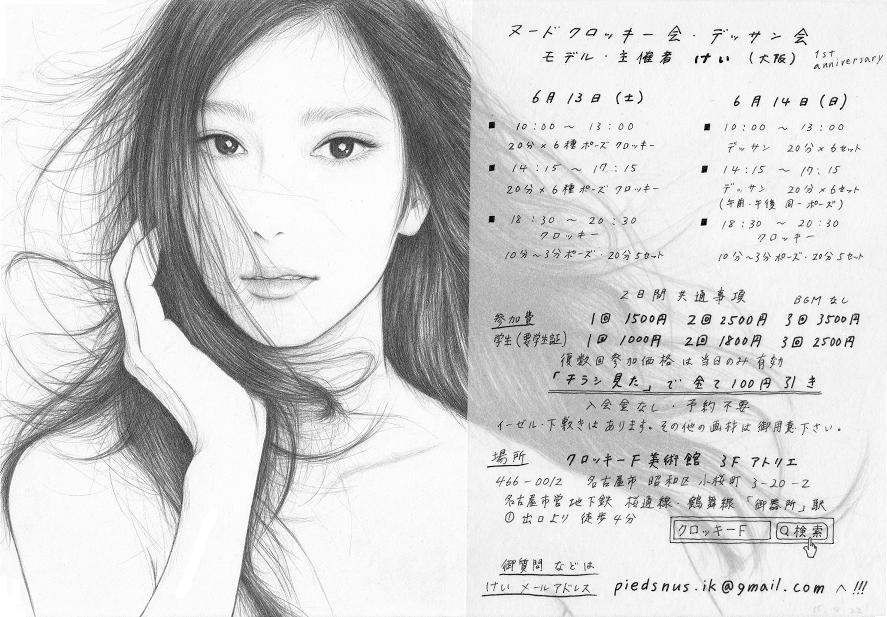 ヌードクロッキー会・デッサン会
モデル・主催者 けい (大阪) 1st anniversary
6月13日(土)
■ 10:00 〜 13:00
20分×6種ポーズ クロッキー
■ 14:15 〜 17:15
20分×6種ポーズ クロッキー
■ 18:30 〜 20:30
クロッキー
10分〜3分ポーズ・20分5セット
6月14日(日)
■ 10:00 〜 13:00
デッサン 20分×6セット
■ 14:15 〜 17:15
デッサン 20分×6セット
(午前・午後 同一ポーズ)
■ 18:30 〜 20:30
クロッキー
10分〜3分ポーズ・20分5セット
2日間共通事項 BGMなし
参加費 1回 1500円 2回 2500円 3回 3500円
学生(要学生証) 1回 1000円 2回 1800円 3回 2500円
復数回参加価格は当日のみ有効
「チラシ見た」で全て100円引き
入会金なし・予約不要
イーゼル・下敷きはあります。その他の画材は御用意下さい。
場所 クロッキーF美術館 3Fアトリエ
466-0012 名古屋市 昭和区 小桜町 3-20-2
名古屋市営地下鉄 桜通線・鶴舞線「御器所」駅
①出口より 徒歩4分
クロッキーF 検索
御質問などは
けい メールアドレス piedsnus.ik@gmail.com へ!!!
15.4.22